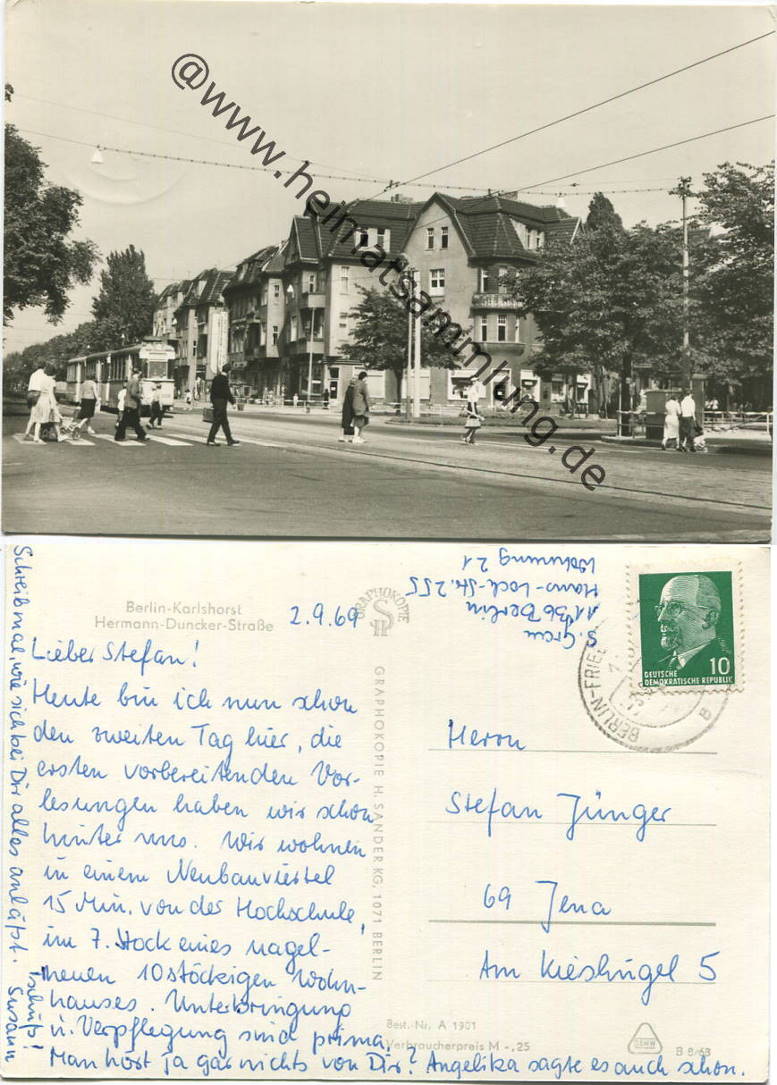 @www.heimatsammlung.de
Berlin-Karlshorst
Hermann-Duncker-Straße
2.9.69
Lieber Stefan!
Heute bin ich nun schon
den zweiten Tag hier, die
ersten vorbereitenden Vor-
lesungen haben wir schon
hinter uns. Wir wohnen
in einem Neubauviertel
15 Min. von der Hochschule,
im 7. Stock eines nagel-
neuen 10stöckigen Wohn-
hauses. Unterbringung
u. Verpflegung sind prima.
Man hört ja gar nichts von Dir? Angelika sagte es auch schon.
Schreib mal, wie sich bei Dir alles anläßt.
Tschüß!
Susann
GRAPHOKOPIE
GRAPHOKOPIE H. SANDER KG, 1071 BERLIN
S. Grau
1136 Berlin
Hans-Loch-Str. 255
Wohnung 21
DEUTSCHE
DEMOKRATISCHE REPUBLIK
10
B
Herrn
Stefan Jünger
69 Jena
Am Kieshügel 5
Best.-Nr. A 1901
Verbraucherpreis M -,25
B 8/68